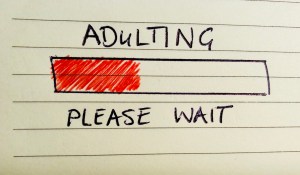 ADULTING
PLEASE WAIT